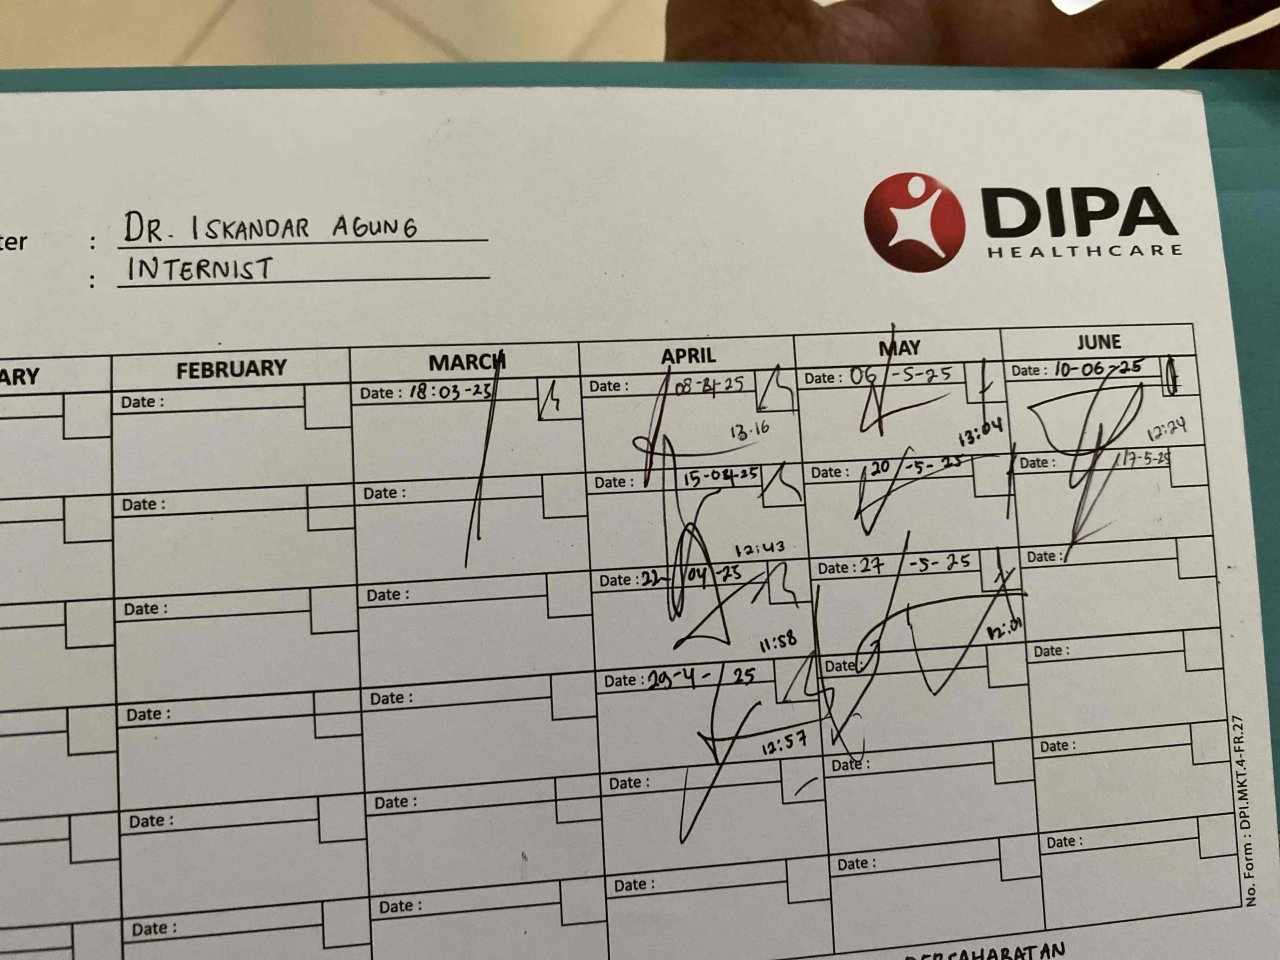 DIPA
HEALTHCARE
ter : DR. ISKANDAR AGUNG
: INTERNIST
ARY FEBRUARY MARCH APRIL MAY JUNE
Date : Date : 18:03-25 Date : 08-04-25 Date : 06-5-25 Date : 10-06-25
13.16 13:04 12:24
Date : Date : Date : 15-04-25 Date : 20-5-25 Date : 17-5-25
12:43
Date : Date : Date : 22-04-25 Date : 27-5-25 Date :
11:58 12:01
Date : Date : Date : 29-4-25 Date : Date :
12:57
Date : Date : Date : Date : Date :
Date : Date : Date : Date : Date :
No. Form : DPI.MKT.4-FR.27
PERSAHABATAN